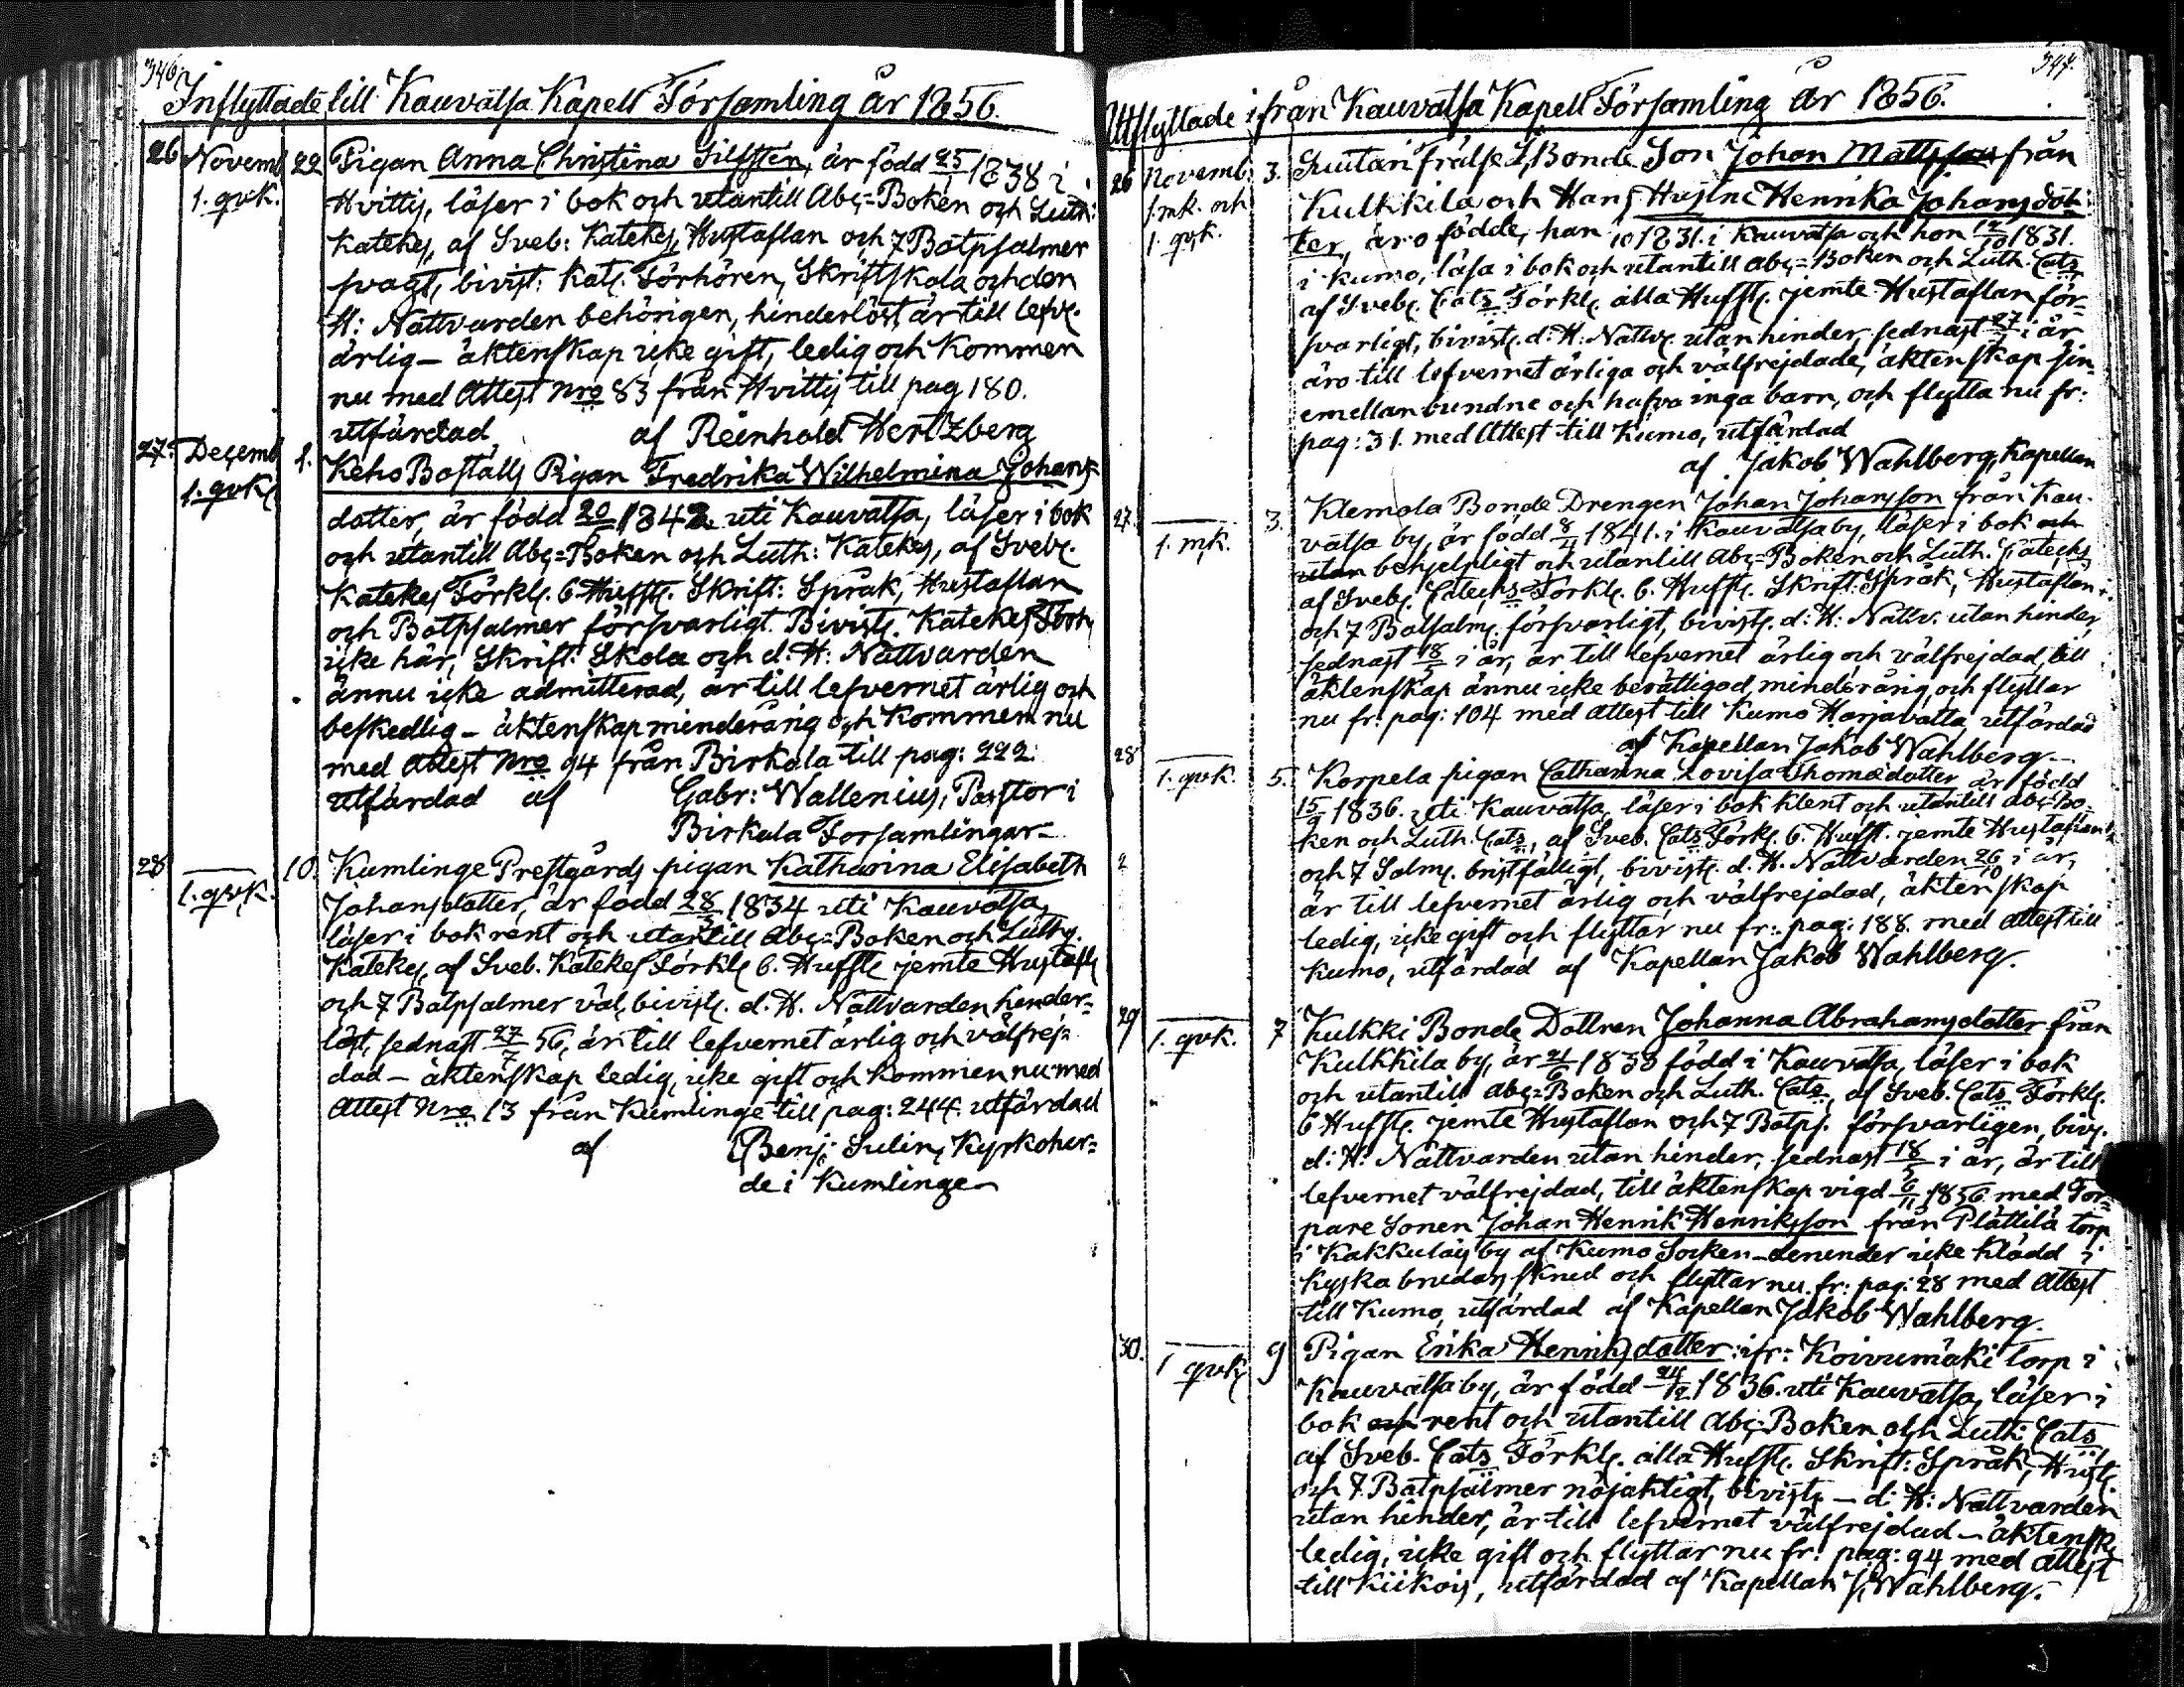 346
Inflyttade till Kauvatsa Kapell Församling år 1856.
26 Novemb 22 Pigan Anna Christina Silfsten, är född 25/1 1838 i
1. qvk. Hvittis, läser i bok och utantill Abc=Boken och Luth:
Katekes, af Sveb: Katekes, Hustaflan och 7 Botpsalmer
svagt, bivist: Kats. Förhören, Skriftskola och den
H: Nattvarden behörigen, hinderlöst, är till lefv.
ärlig – äktenskap icke gift, ledig och Kommen
nu med Attest Nro 83 från Hvittis till pag 180.
utfärdad af Reinhold Hertzberg
27. Decemb 1. Keho Boställs Pigan Fredrika Wilhelmina Johans
1. qvk. dotter, är född 20/ 1842 uti Kauvatsa, läser i bok
och utantill Abc=Boken och Luth: Katekes, af Sveb.
Katekes Förkl. 6 Hufst. Skrift: Språk, Hustaflan
och Botpsalmer försvarligt. Bivist. Katekes Förh
icke här, Skrift: Skola och d: H: Nattvarden
ännu icke admitterad, är till lefvernet ärlig och
beskedlig – äktenskap minderårig och Kommen nu
med Attest Nro 94 från Birkala till pag: 222.
utfärdad af Gabr: Wallenius, Pastor i
Birkala Församlingar –
28 10. Kumlinge Prestgårds pigan Katharina Elisabeth
1. qvk. Johansdotter, är född 28/3 1834 uti Kauvatsa,
läser i bok rent och utantill Abc=Boken och Luth.
Katekes, af Sveb. Katekes Förkl. 6. Hufst. jemte Hustafl
och 7 Botpsalmer väl, bivist. d. H. Nattvarden hinder=
löst, sednast 27/7 56, är till lefvernet ärlig och välfrej=
dad – äktenskap ledig, icke gift och Kommen nu med
Attest Nro 13 från Kumlinge till pag: 244. utfärdad
af Benj: Sulin, Kyrkoher=
de i Kumlinge –
347.
Utflyttade ifrån Kauvatsa Kapell Församling år 1856.
26 Novemb: 3. frälse Bonde Son Johan Mattsson från
1. mk. och Kulkkila och Hans Hustru Henrika Johansdot=
1. qvk. ter, äro födde, han 10 1831. i Kauvatsa och hon 12/10 1831.
i Kumo, läsa i bok och utantill Abc=Boken och Luth. Cats
af Sveb. Cats Förkl. alla Hufst. jemte Hustaflan för=
svarligt, bivist. d: H: Nattv. utan hinder, sednast 27/7 i år
äro till lefvernet ärliga och välfrejdade, äktenskap sin
emellan bundne och hafva inga barn, och flytta nu fr:
pag: 31. med Attest till Kumo, utfärdad
af Jakob Wahlberg, Kapellan
27. 3. Klemola Bonde Drengen Johan Johansson från Kau-
1. mk. vatsa by, är född 8/4 1841. i Kauvatsa by, läser i bok och
utan behjelpligt och utantill Abc=Boken och Luth. Catechs
af Sveb. Catechs Förkl. 6. Hufst. Skrift: Språk, Hustaflan
och 7 Botsalm. försvarligt, bivist. d: H: Nattv. utan hinder,
sednast 18/5 i år, är till lefvernet ärlig och välfrejdad, till
äktenskap ännu icke berättigad, minderårig, och flyttar
nu fr: pag: 104 med Attest till Kumo Harjavalta utfärdad
af Kapellan Jakob Wahlberg –
28 5. Korpela pigan Catharina Lovisa Thomædotter är född
1. qvk. 15/9 1836. uti Kauvatsa, läser i bok klent och utantill Abc=Bo=
ken och Luth. Cats., af Sveb. Cats Förkl. 6. Hufst. jemte Hustaflan
och 7 Salm. bristfälligt, bivist. d. H. Nattvarden 26/10 i år,
är till lefvernet ärlig och välfrejdad, äktenskap
ledig, icke gift och flyttar nu fr: pag: 188. med Attest till
Kumo, utfärdad af Kapellan Jakob Wahlberg.
29 7 Kulkki Bonde Dottren Johanna Abrahamsdotter från
1. qvk. Kulkkila by, är 21/6 1833 född i Kauvatsa, läser i bok
och utantill Abc=Boken och Luth. Cats., af Sveb. Cats Förkl.
6 Hufst. jemte Hustaflan och 7 Botps. försvarligen, biv.
d: H: Nattvarden utan hinder, sednast 18/5 i år, är till
lefvernet välfrejdad, till äktenskap vigd 6/11 1856 med Tor=
pare Sonen Johan Henrik Henriksson från Plättilä torp
i Kakkulais by af Kumo Socken – icke Klädd i
Kyska brudars skrud och flyttar nu fr: pag: 28 med Attest
till Kumo, utfärdad af Kapellan Jakob Wahlberg.
30. 9 Pigan Erika Henriksdotter ifr: Koivumäki torp i
1 qvk. Kauvatsa by, är född 24/12 1836. uti Kauvatsa, läser i
bok och rent och utantill Abc=Boken och Luth: Cats
af Sveb. Cats Förkl. alla Hufst. Skrift: Språk, Hust.
och 7. Botpsalmer nöjaktigt, bivist – d: H: Nattvarden
utan hinder, är till lefvernet välfrejdad – äktensk.
ledig, icke gift och flyttar nu fr: pag: 94 med Attest
till Kiikois, utfärdad af Kapellan J. Wahlberg.